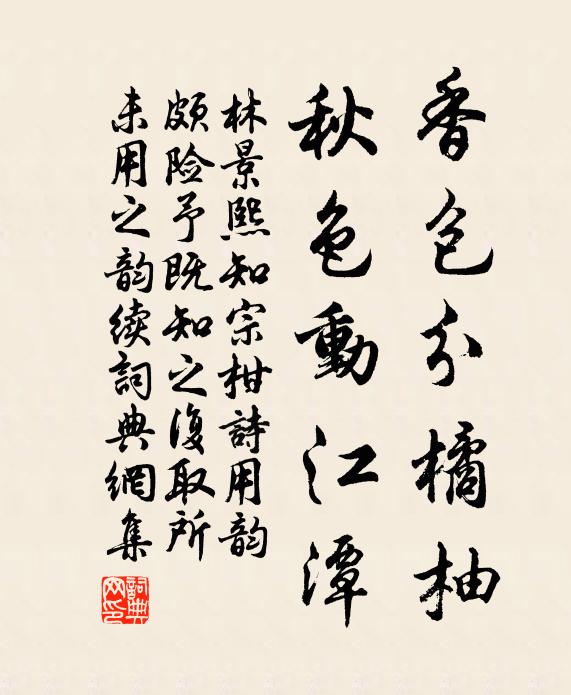 香包分橘柚
秋色動江潭
林景熙知宗柑詩用韵
颇险予既知之復取所
未用之韵续詞典網集
詞典网印